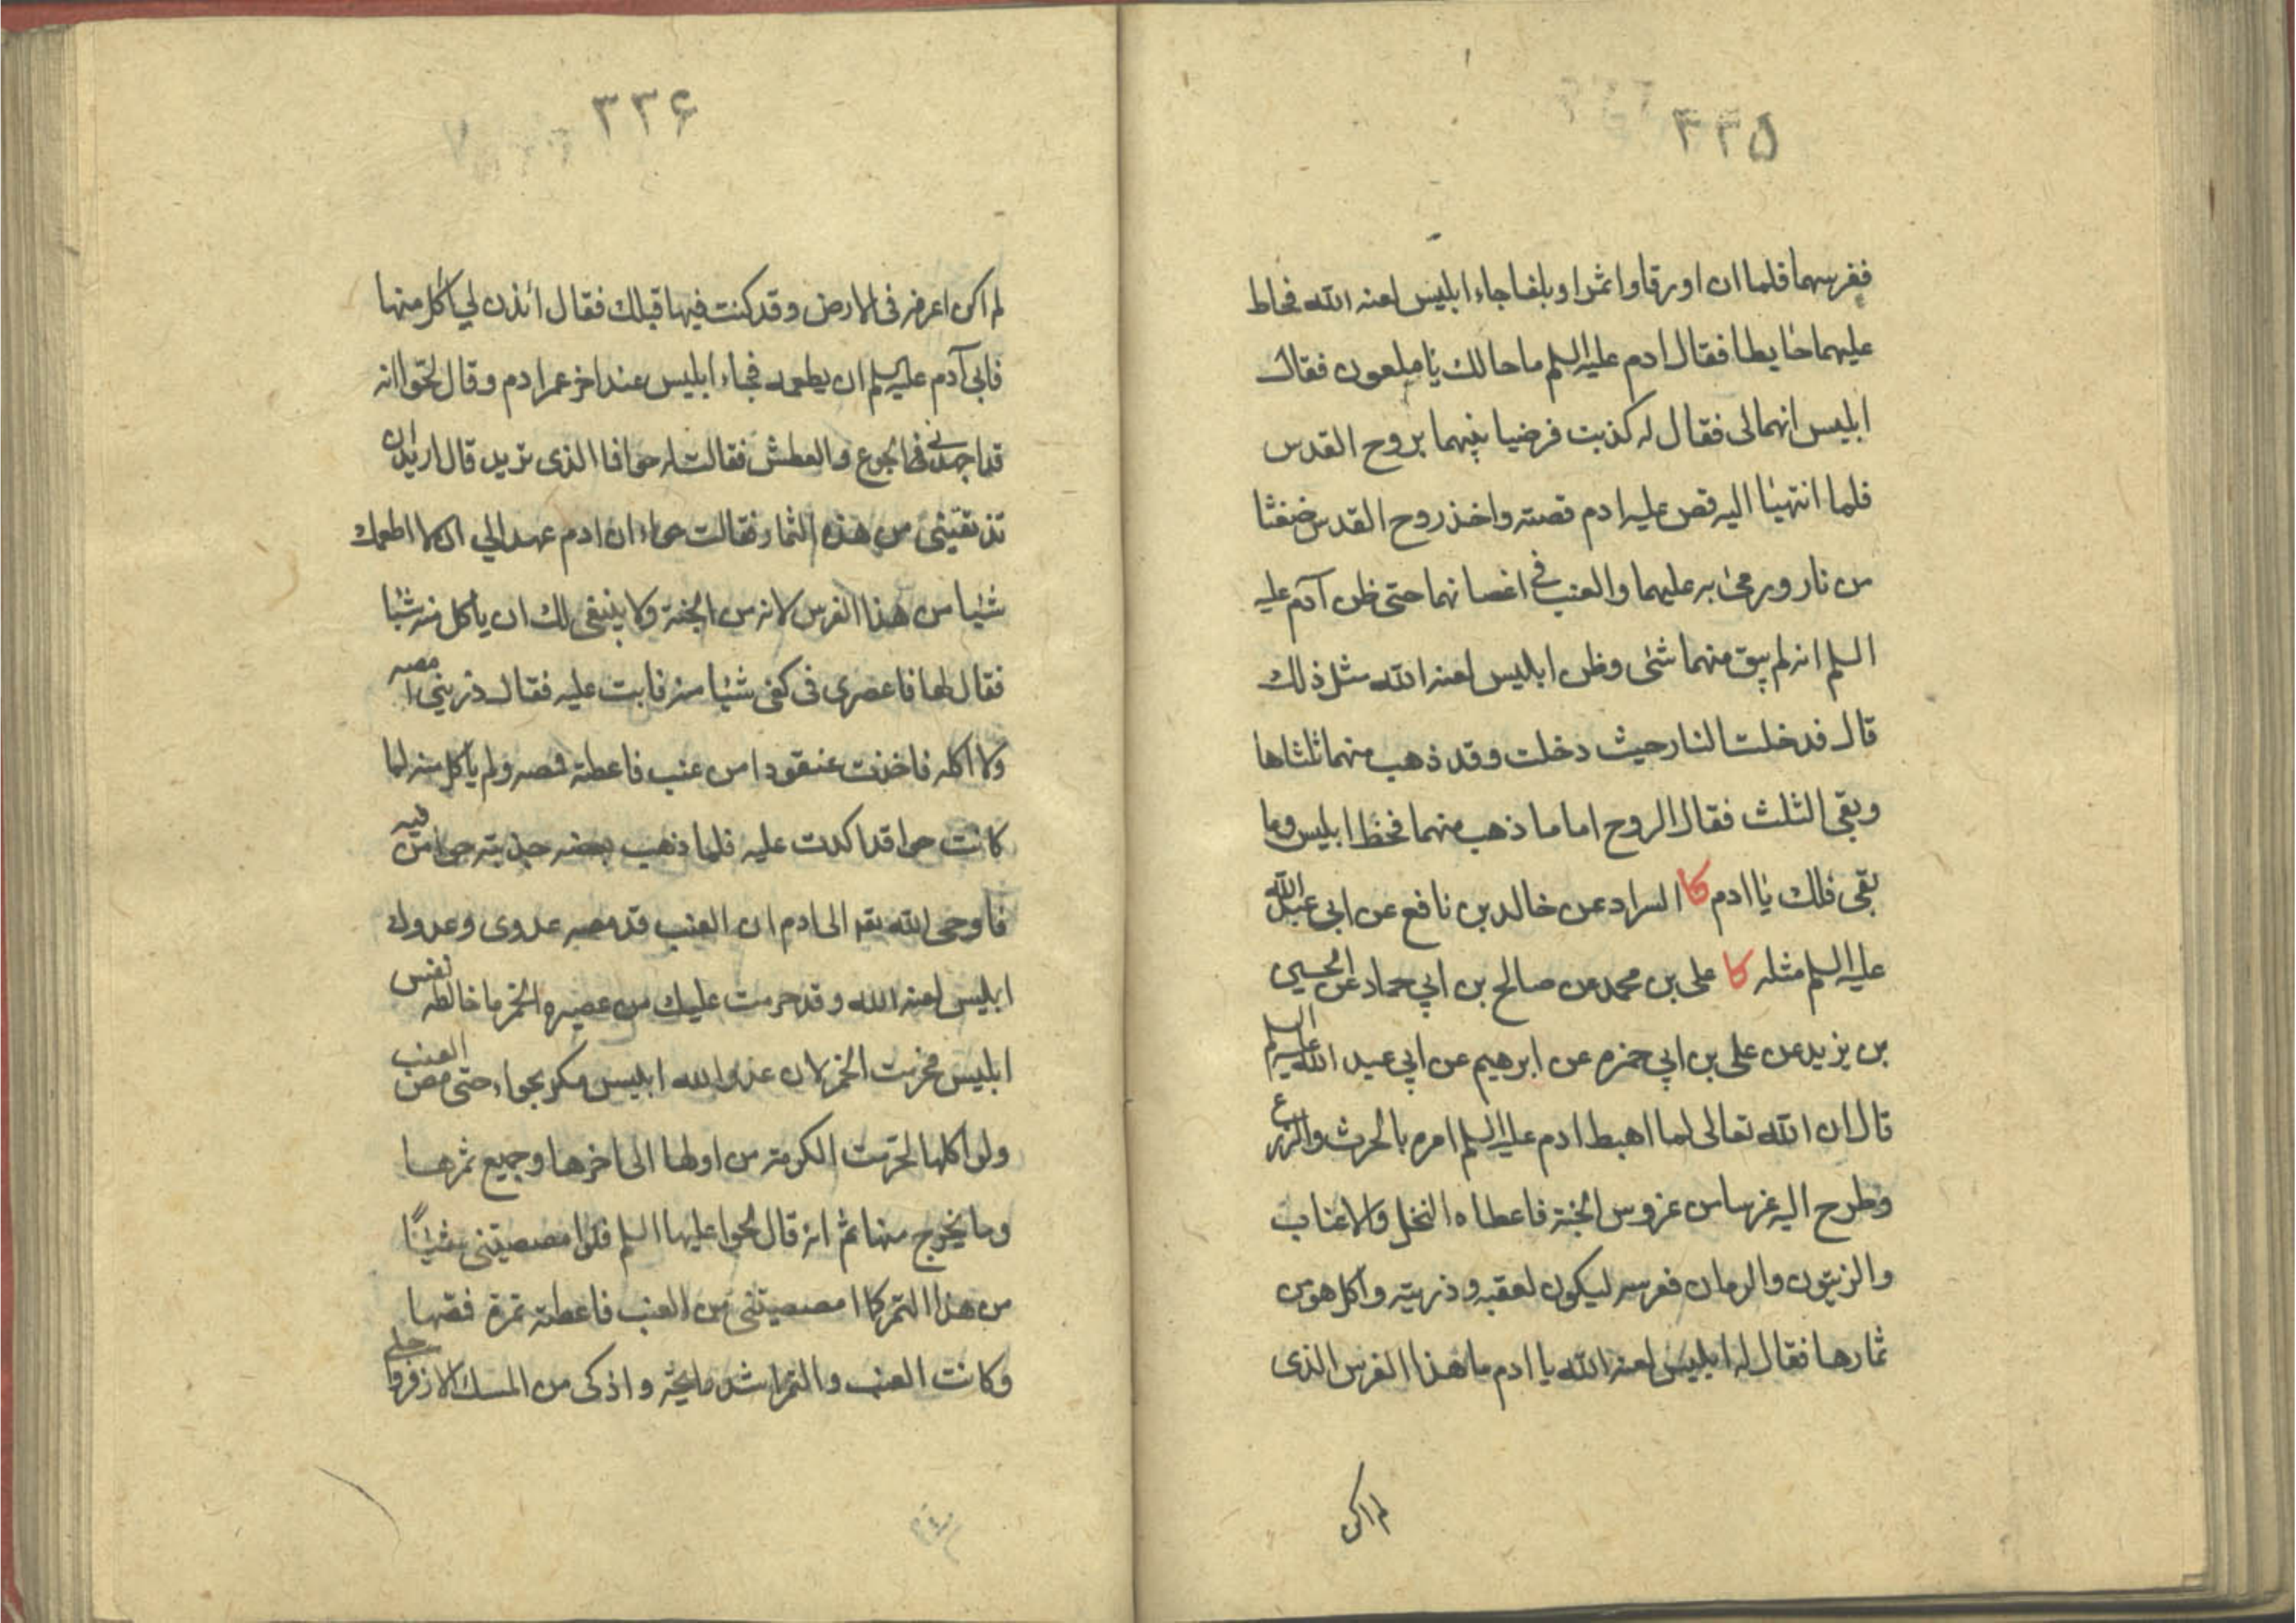 ۳۳۵
فغرسهما فلما ان اورقا واثمرا وبلغا جاء ابليس لعنه الله فحاط
عليهما حايطا فقال ادم عليه السلم ما حالك يا ملعون فقال
ابليس انهما لى فقال له كذبت فرضيا بينهما بروح القدس
فلما انتهيا اليه قص عليه ادم قصته واخذ روح القدس ضغثا
من نار ورمى به عليهما والعنب فى اغصانهما حتى ظن آدم عليه
السلم انه لم يبق منهما شئ وظن ابليس لعنه الله مثل ذلك
قال فدخلت النار حيث دخلت وقد ذهب منهما ثلثاها
وبقى الثلث فقال الروح اما ما ذهب منهما فحظ ابليس وما
بقى فلك يا ادم كا السراد عن خالد بن نافع عن ابى عبد الله
عليه السلم مثله كا على بن محمد عن صالح بن ابى حماد عن الحسين
بن يزيد عن على بن ابى حمزه عن ابرهيم عن ابى عبد الله عليه السلم
قال ان الله تعالى لما اهبط ادم عليه السلم امره بالحرث والزرع
وطرح اليه غرسا من غروس الجنة فاعطاه النخل والاعناب
والزيتون والرمان فغرسه ليكون لعقبه وذريته واكل هو من
ثمارها فقال له ابليس لعنه الله يا ادم ما هذا الغرس الذى
لم اكن
۳۳۶
لم اكن اعرفه فى الارض وقد كنت فيها قبلك فقال ائذن لى آكل منها
فابى آدم عليه السلم ان يطعمه فجاء ابليس عند اخر عمر ادم وقال لحوا انه
قد اجهدنى الجوع والعطش فقالت له حوا فما الذى تريد قال اريد ان
تذيقينى من هذه الثمار فقالت حواء ان ادم عهد الى ان لا اطعمك
شيئا من هذا الغرس لانه من الجنة ولا ينبغى لك ان ياكل منه شيئا
فقال لها فاعصرى فى كفى شيئا منه فابت عليه فقال ذرينى امصه
ولا اكله فاخذت عنقودا من عنب فاعطته فمصه ولم ياكل منه لما
كانت حوا قد اكدت عليه فلما ذهب بعضه جذبته حوا من فيه
فاوحى الله تعه الى ادم ان العنب قد مصه عدوى وعدوك
ابليس لعنه الله وقد حرمت عليك من عصيره الخمر ما خالطه نفس
ابليس فحرمت الخمر لان عدو الله ابليس مكر بحواء حتى مص العنب
ولو اكلها لحرمت الكرمة من اولها الى اخرها وجميع ثمرها
وما يخرج منها ثم انه قال لحوا عليها السلم فلو امصصتينى شيئًا
من هذا التمر كما امصصتينى من العنب فاعطته تمرة فمصها
وكانت العنب والتمر اشد رايحة واذكى من المسك الاذفر واحلى